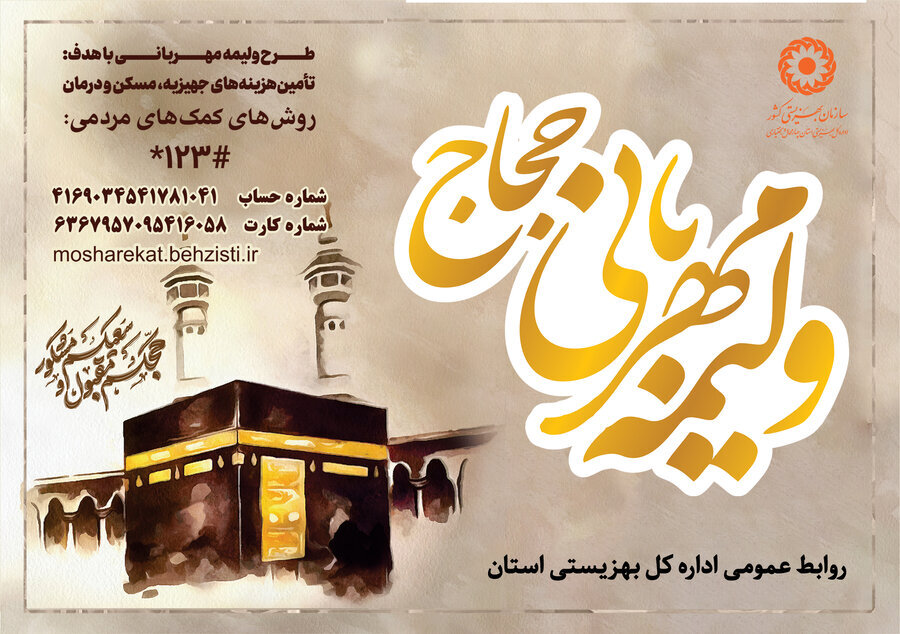 سازمان بهزیستی کشور
اداره کل بهزیستی استان چهارمحال و بختیاری
ولیمه مهربانی حجاج
طرح ولیمه مهربانی با هدف:
تأمین هزینه‌های جهیزیه، مسکن و درمان
روش‌های کمک‌های مردمی:
*۱۲۳#
شماره حساب ۴۱۶۹۰۳۴۵۴۱۷۸۱۰۴۱
شماره کارت ۶۳۶۷۹۵۷۰۹۵۴۱۶۰۵۸
mosharekat.behzisti.ir
حجکم مقبول و
سعیکم مشکور
روابط عمومی اداره کل بهزیستی استان